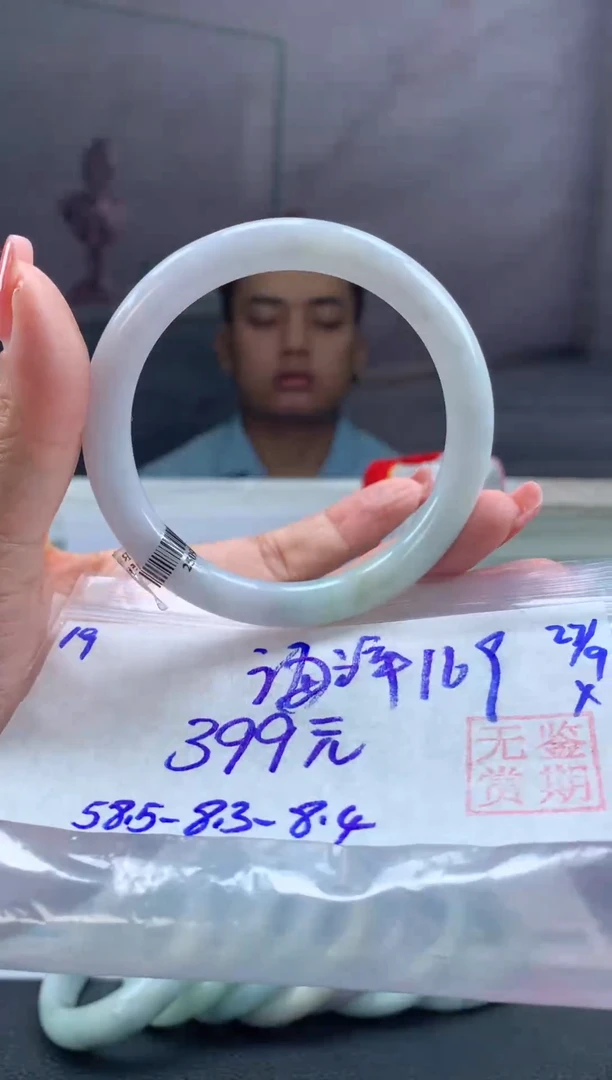 19
海洋169
27/9
x
399元
无鉴
赏期
58.5-8.3-8.4